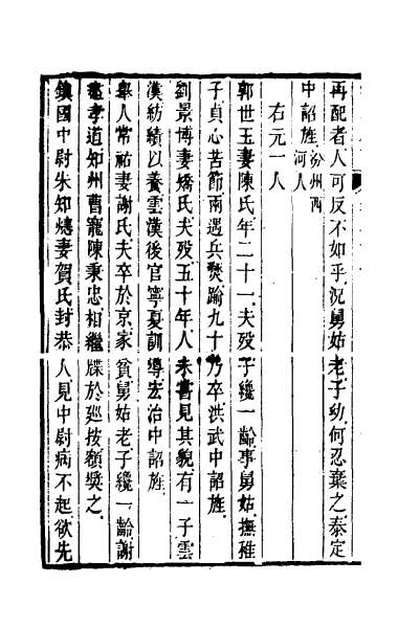 再配者人可反不如乎況舅姑老子幼何忍棄之泰定
中詔旌汾州西河人
右元一人
郭世玉妻陳氏年二十一夫歿子纔一齡事舅姑撫稚
子貞心苦節南遇兵燹踰九十乃卒洪武中詔旌
劉景博妻矯氏夫歿五十年人未嘗見其貌有一子雲
漢紡績以養雲漢後官寧夏訓導宏治中詔旌
舉人常祐妻謝氏夫卒於京家貧舅姑老子纔一齡謝
孝道知州曹寵陳秉忠相繼牒於廵按額奬之
鎮國中尉朱知𤏳妻賀氏封恭人見中尉病不起欲先